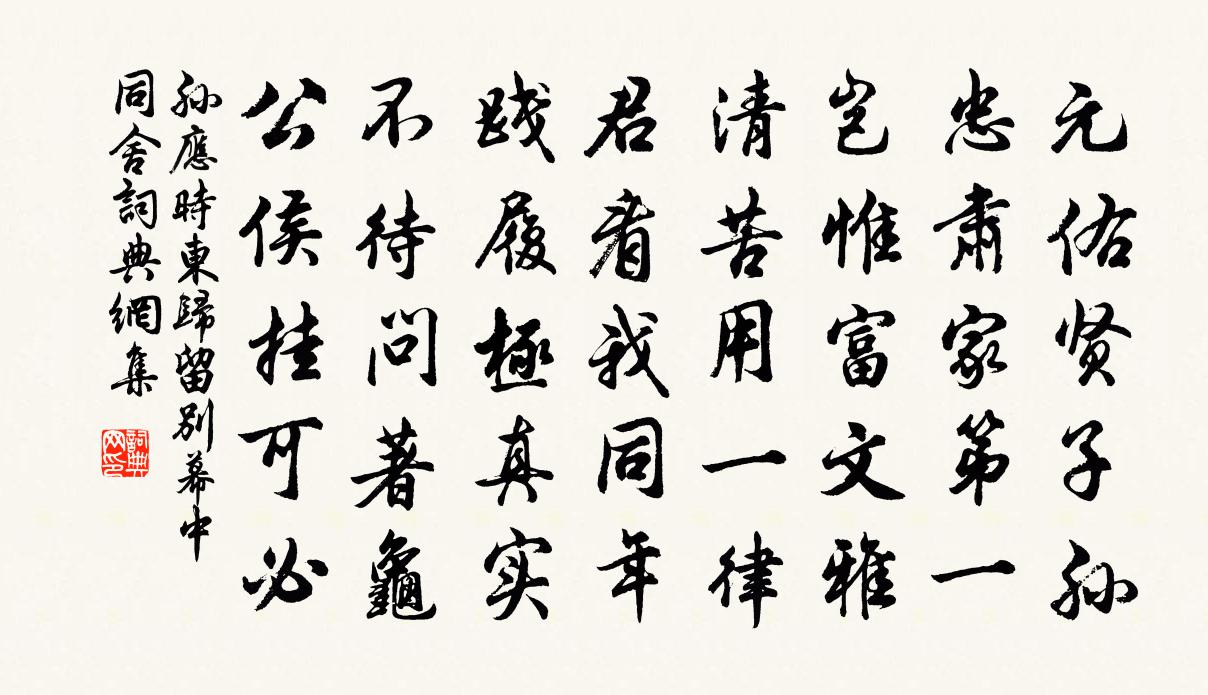 元佑贤子孙
忠肃家第一
岂惟富文雅
清苦用一律
君看我同年
践履極真实
不待问著龜
公侯挂可必
孙應時東歸留別幕中
同舍詞典網集
詞典
网印